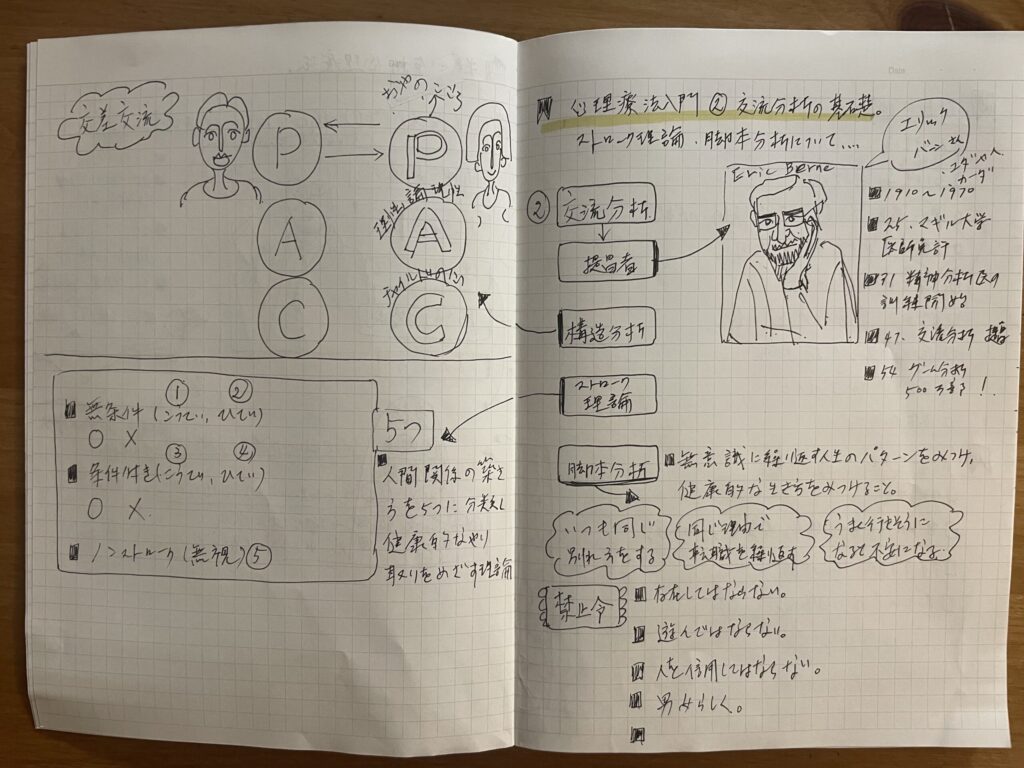 交差交流
おやのこころ
P
P
理性、論理性
A
A
チャイルドの心
C
C
① ②
無条件(こうてい、ひてい)
○ ×
③ ④
条件付き(こうてい、ひてい)
○ ×.
ノンストローク(無視)⑤
5つ
人間関係の築き
方を5つに分類し
健康的なやり
取りをめざす理論
Date
心理療法入門 ② 交流分析の基礎。
ストローク理論、脚本分析について…
エリック
バーンさん
ユダヤ人
カナダ
Eric Berne
② 交流分析
提唱者
構造分析
ストローク
理論
1910〜1970
25. マギル大学
医師免許
31 精神分析医の
訓練開始
47. 交流分析 提唱
54 ゲーム分析
500万部!
脚本分析
無意識に繰り返す人生のパターンをみつけ、
健康的な生き方をみつけること。
いつも同じ
別れ方をする
同じ理由で
転職を繰り返す
うまく行きそうに
なると不安になる
禁止令
存在してはならない。
遊んではならない。
人を信用してはならない。
男女らしく。